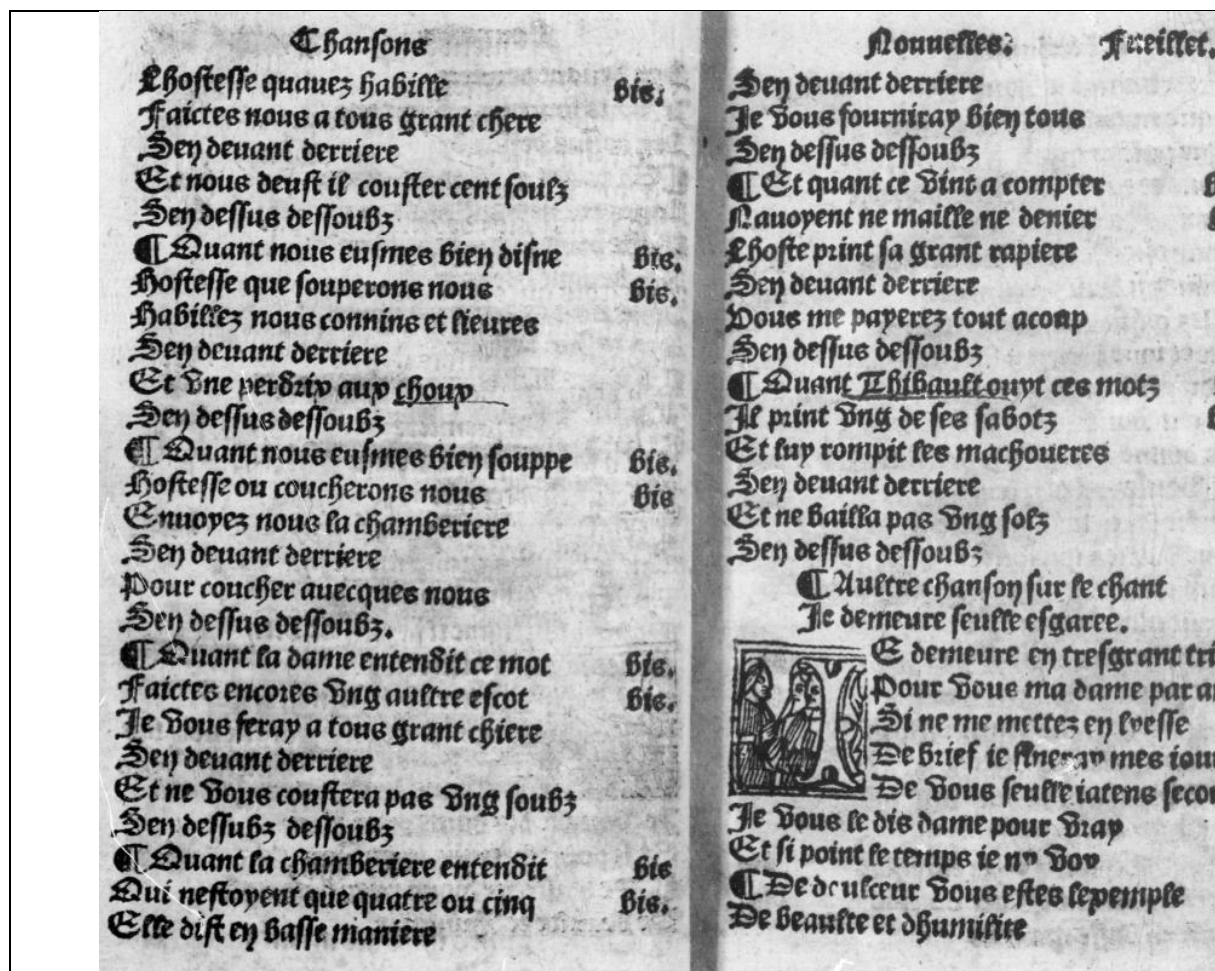 Chansons
Lhostesse quauez habille bis.
Faictes nous a tous grant chere
Sen deuant derriere
Et nous deust il couster cent soulz
Sen dessus dessoubz
¶ Quant nous eusmes bien disne bis.
Hostesse que souperons nous bis.
Habillez nous connins et lieures
Sen deuant derriere
Et vne perdrix aux choux
Sen dessus dessoubz
¶ Quant nous eusmes bien souppe bis.
Hostesse ou coucherons nous bis
Enuoyez nous la chamberiere
Sen deuant derriere
Pour coucher auecques nous
Sen dessus dessoubz.
¶ Quant la dame entendit ce mot bis.
Faictes encores vng aultre escot bis.
Je vous feray a tous grant chiere
Sen deuant derriere
Et ne vous coustera pas vng soubz
Sen dessubz dessoubz
¶ Quant la chamberiere entendit bis
Qui nestoyent que quatre ou cinq bis.
Elle dist en basse maniere
Nouuelles. Fueillet.
Sen deuant derriere
Je vous fourniray bien tous
Sen dessus dessoubz
¶ Et quant ce vint a compter
Nauoyent ne maille ne denier
Lhoste print sa grant rapiere
Sen deuant derriere
Vous me payerez tout acoup
Sen dessus dessoubz
¶ Quant Thibault ouyt ces motz
Il print vng de ses sabotz
Et luy rompit les machoueres
Sen deuant derriere
Et ne bailla pas vng solz
Sen dessus dessoubz
¶ Aultre chanson sur le chant
Je demeure seulle esgaree.
IE demeure en tresgrant tri
Pour vous ma dame par a
Si ne me mettez en lyesse
De brief ie fineray mes iou
De vous seulle iatens seco
Je vous le dis dame pour vray
Et si point le temps ie ny voy
¶ De doulceur vous estes lexemple
De beaulte et dhumilite